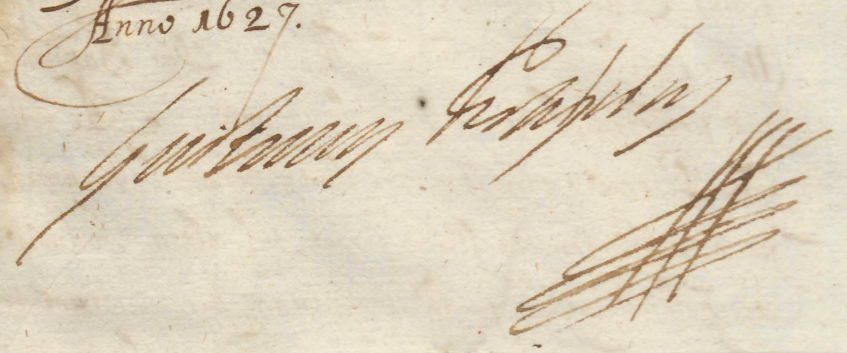 Anno 1627.
Gustavus Adolphus